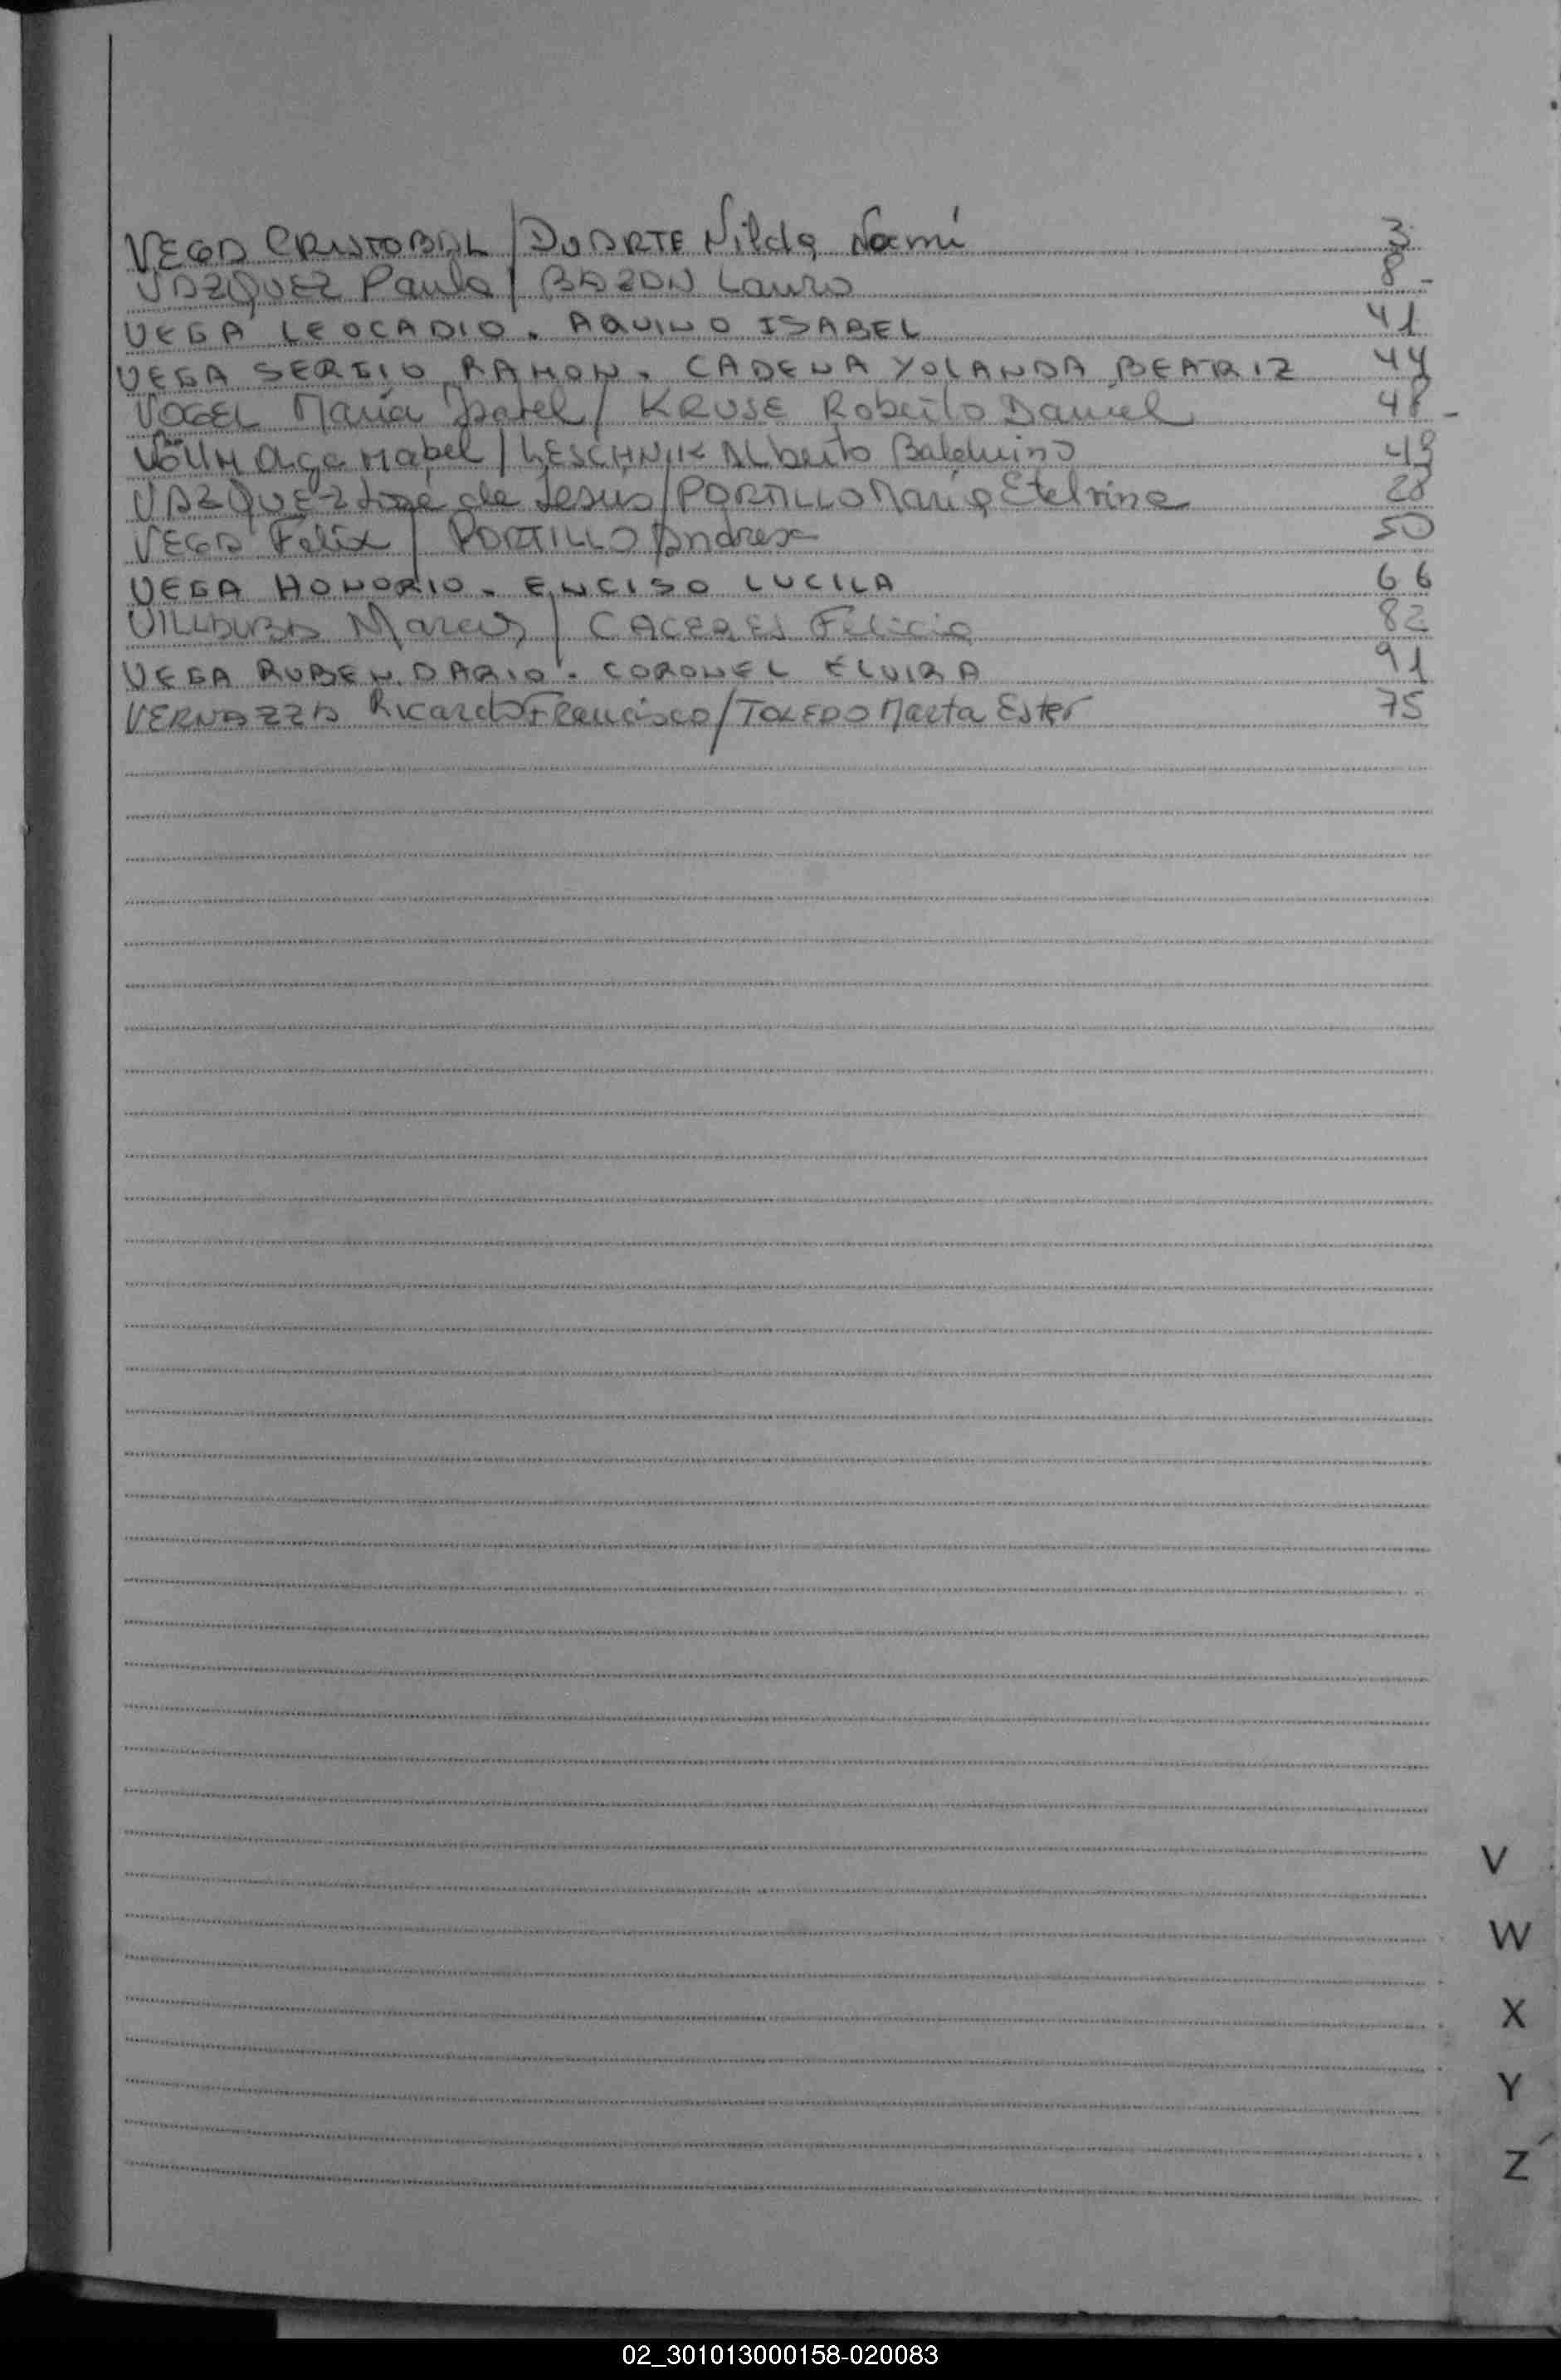 VEGA CRISTOBAL / DUARTE Nilda Noemí 3
VAZQUEZ Paula / BAZAN Lauro 8 -
VEGA LEOCADIO. AQUINO ISABEL 41
VEGA SERGIO RAMON. CADENA YOLANDA BEATRIZ 44
VOGEL María Isabel / KRUSE Roberto Daniel 48 -
Olga Mabel / LESCHNIK Alberto Balduino 49
VAZQUEZ José de Jesús / PORTILLO María Etelvina 28
VEGA Felix / PORTILLO Andresa 50
VEGA HONORIO. ENCISO LUCILA 66
VILLALBA Marcos / CACERES Felicia 82
VEGA RUBEN DARIO. CORONEL ELVIRA 91
VERNAZZA Ricardo Francisco / TOLEDO Marta Ester 75
V
W
X
Y
Z
02_301013000158-020083